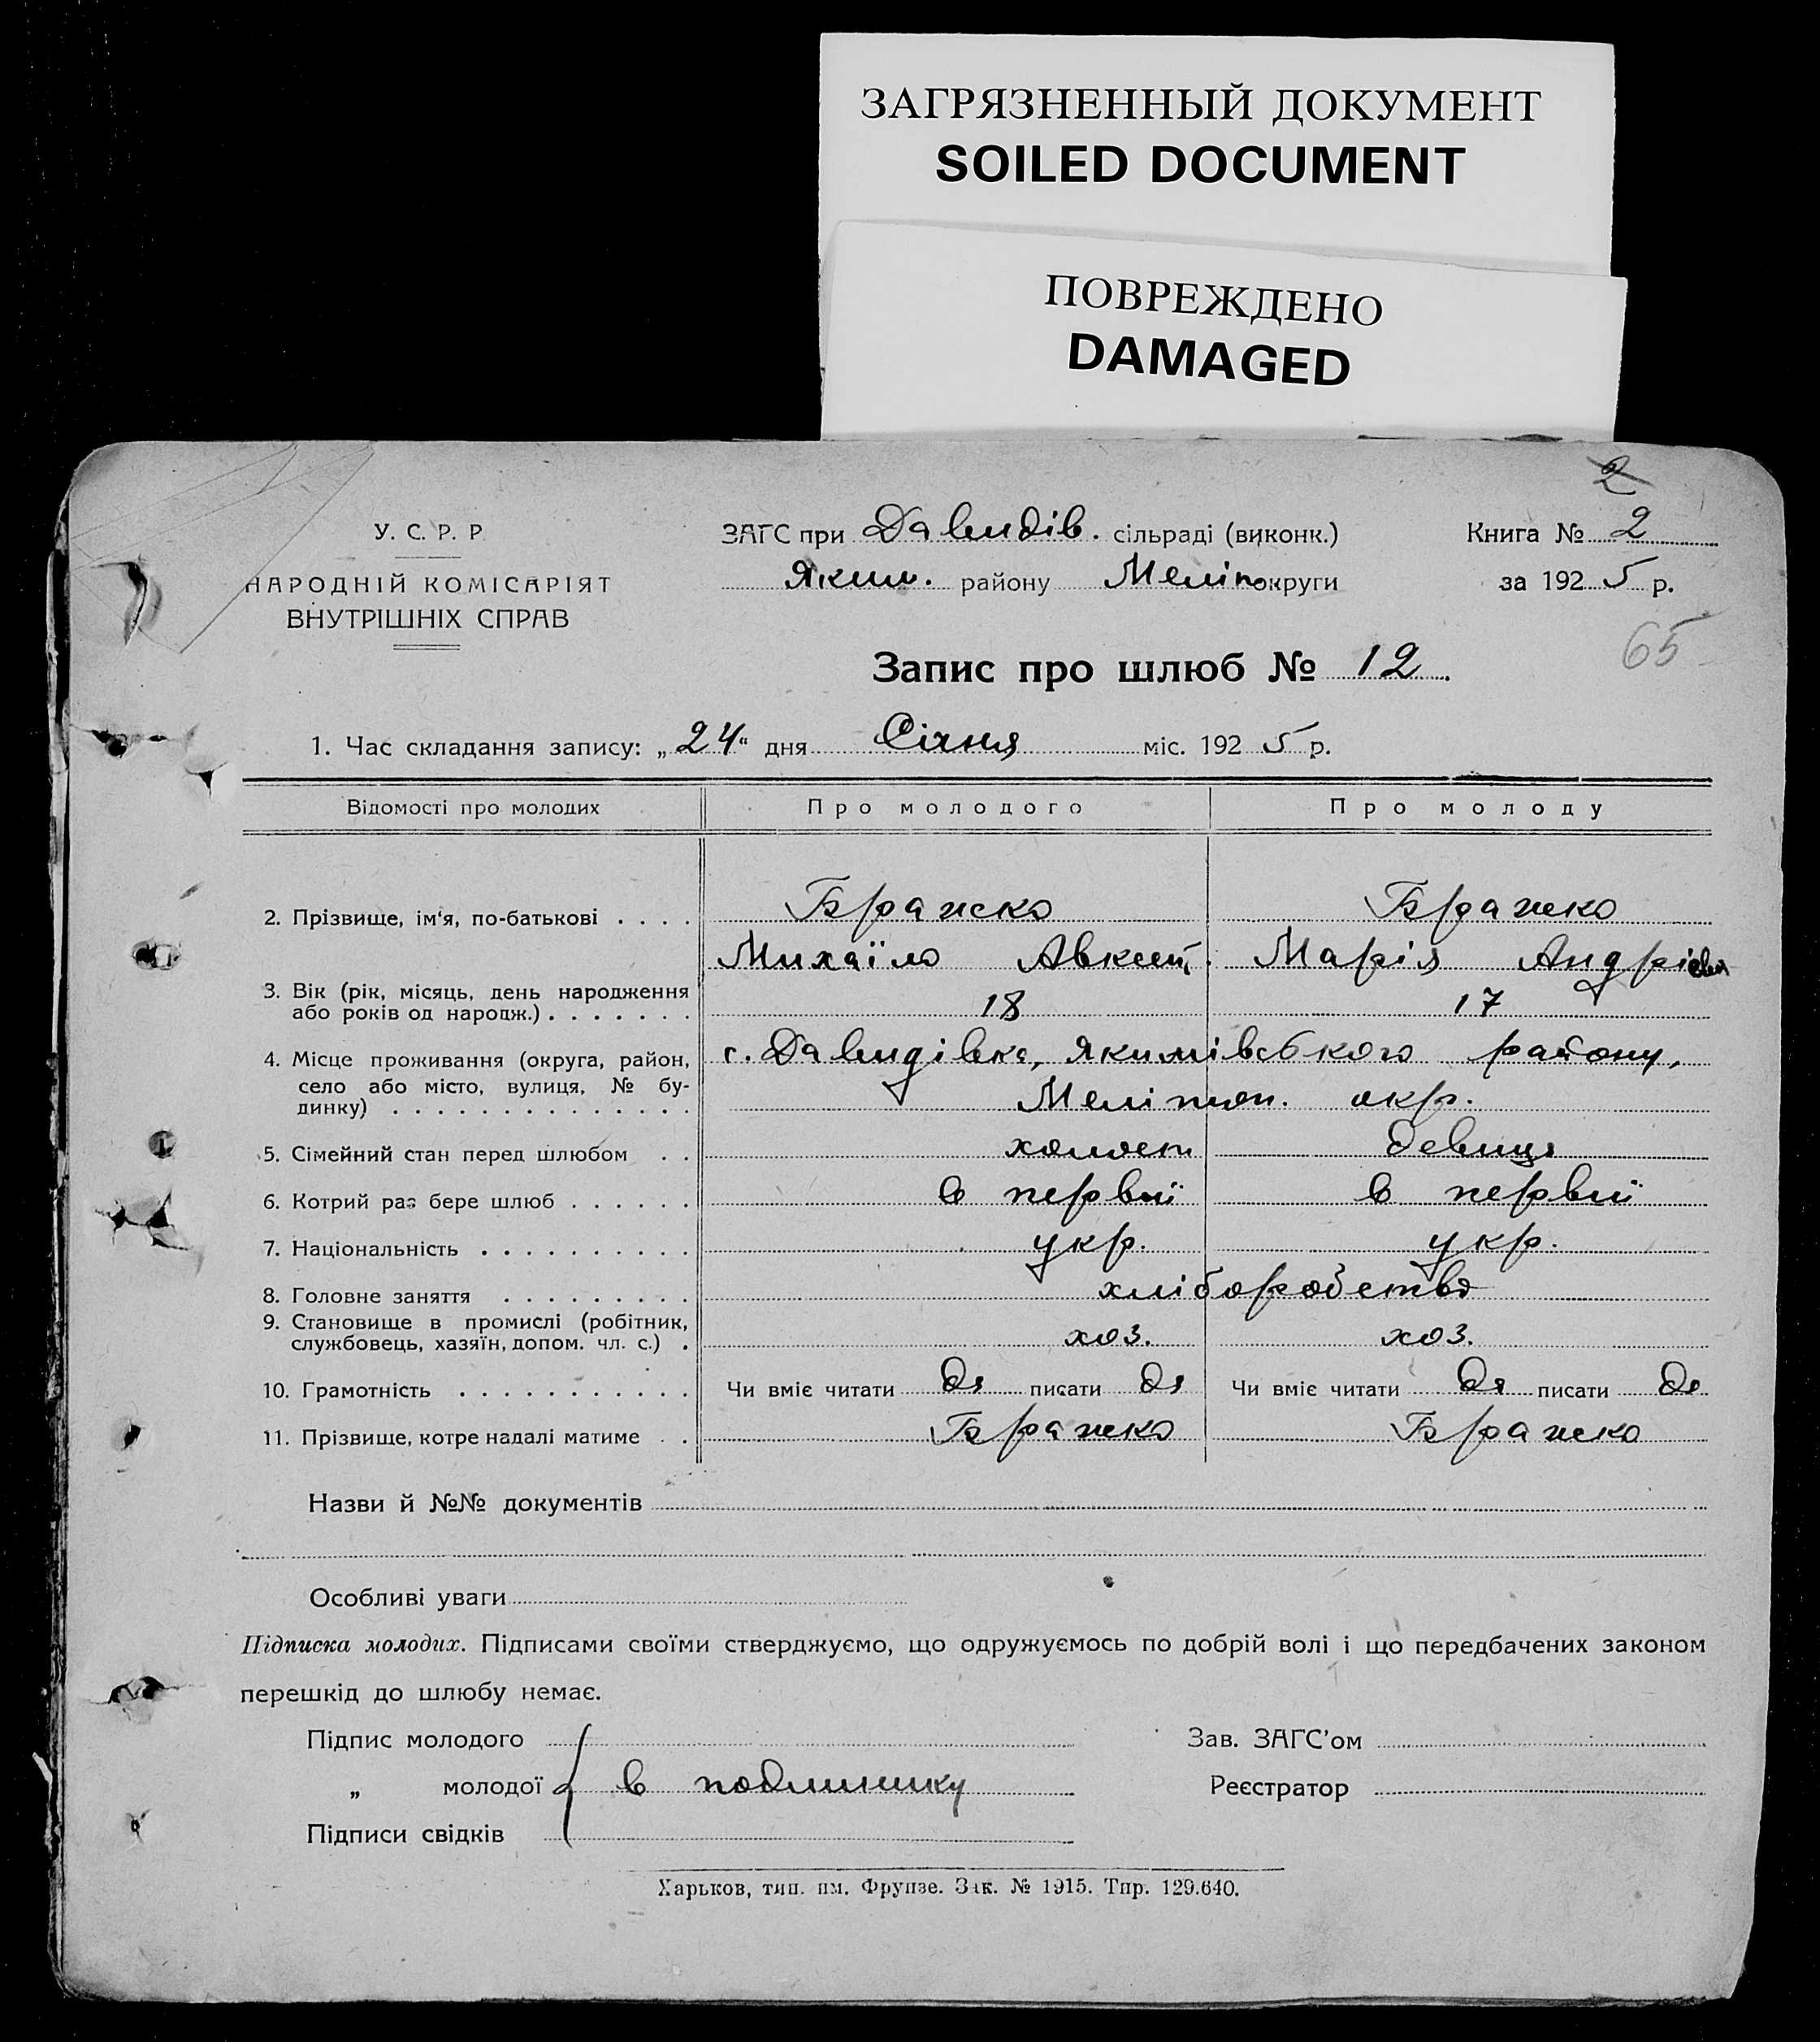 ЗАГРЯЗНЕННЫЙ ДОКУМЕНТ
SOILED DOCUMENT
ПОВРЕЖДЕНО
DAMAGED
2
У. С. Р. Р
НАРОДНІЙ КОМІСАРІЯТ
ВНУТРІШНІХ СПРАВ
ЗАГС при Давидів. сільраді (виконк.)
Яким. району Меліт. округи
Книга № 2
за 1925 р.
65
Запис про шлюб № 12.
1. Час складання запису: „24“ дня Січня міс. 1925 р.
Відомості про молодих Про молодого Про молоду
2. Прізвище, ім‘я, по-батькові . . . . Бражко Бражко
Михаїло Авксент. Марія Андрієвн
3. Вік (рік, місяць, день народження
або років од народж.) . . . . . . . 18 17
4. Місце проживання (округа, район, с. Давидівка, Якимівського району,
село або місто, вулиця, № бу-
динку) . . . . . . . . . . . . . . Мелітоп. окр.
5. Сімейний стан перед шлюбом . . холост девиця
6. Котрий раз бере шлюб . . . . . . в первиї в первиї
7. Національність . . . . . . . . . . укр. укр.
8. Головне заняття . . . . . . . . . хліборобство
9. Становище в промислі (робітник,
службовець, хазяїн, допом. чл. с.) . хоз. хоз.
10. Грамотність . . . . . . . . . . . Чи вміє читати да писати да Чи вміє читати да писати да
11. Прізвище, котре надалі матиме . . Бражко Бражко
Назви й №№ документів
Особливі уваги
Підписка молодих. Підписами своїми стверджуємо, що одружуємось по добрій волі і що передбачених законом
перешкід до шлюбу немає.
Підпис молодого
„ молодої в подлинику
Підписи свідків
Зав. ЗАГС’ом
Реєстратор
Харьков, тип. им. Фрунзе. Зак. № 1915. Тир. 129.640.